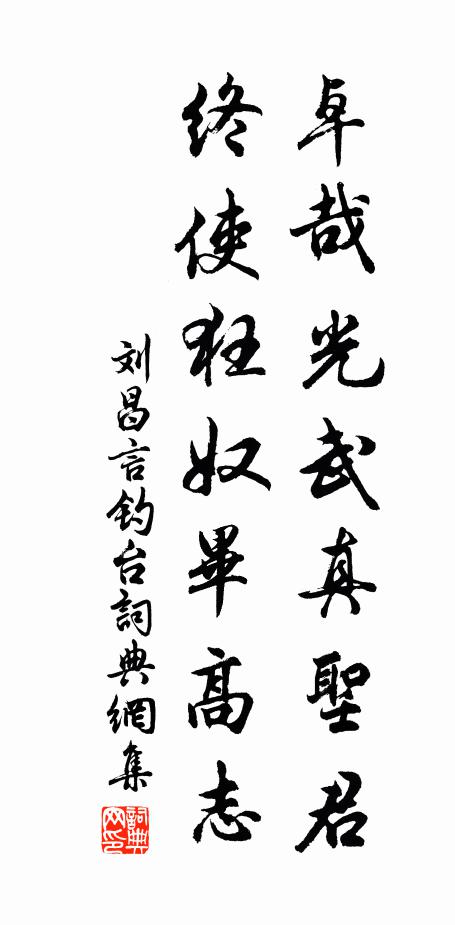 卓哉光武真聖君
終使狂奴畢高志
刘昌言钓台詞典網集
詞典网印